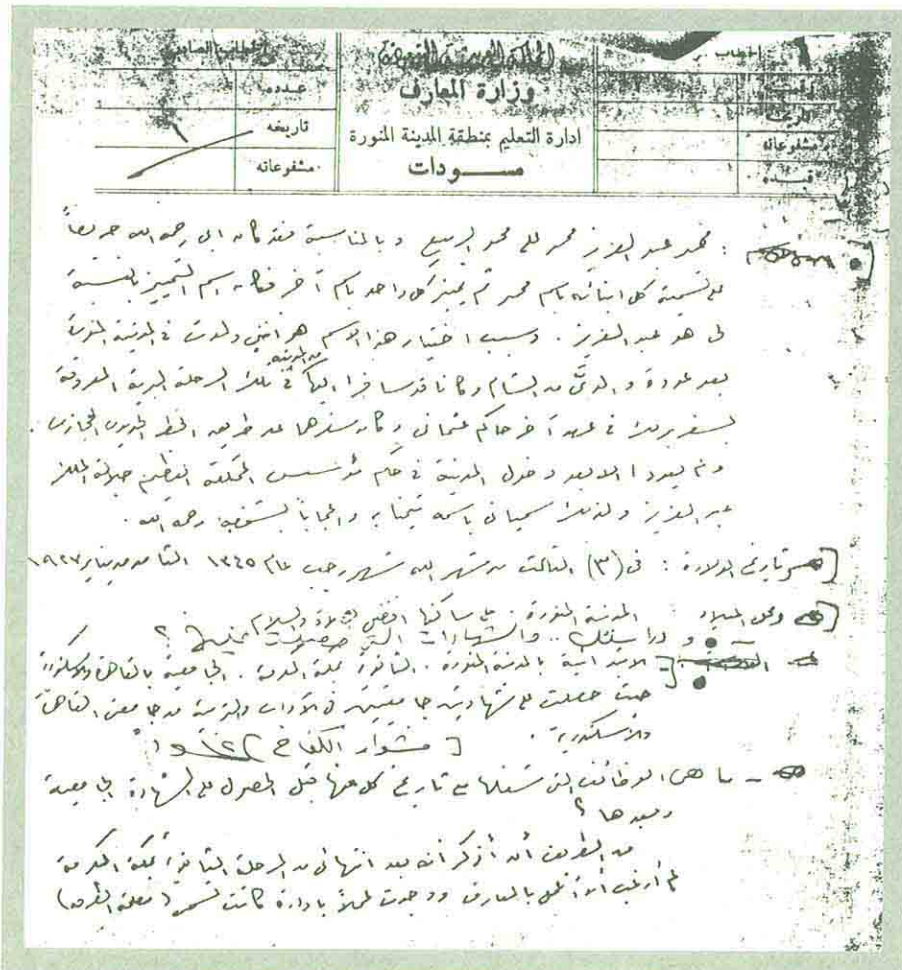 المملكة العربية السعودية
وزارة المعارف
ادارة التعليم بمنطقة المدينة المنورة
مســـودات
الخطاب
رقمه
تاريخه
مشفوعاته
قيده
الخطاب الصادر
عدده
تاريخه
مشفوعاته
: محمد عبد العزيز محمد علي محمد الربيع وبالمناسبة فقد كان ابي رحمه الله حريصاً
على تسمية كل ابنائه باسم محمد ثم يميز كل واحد باسم آخر فكان اسم التمييز بالنسبة
لي هو عبد العزيز . وسبب اختيار هذا الاسم هو أنني ولدت في المدينة المنورة
بعد عودة والديَّ من الشام وكانا قد سافرا اليها من المدينة في تلك الرحلة البرية المعروفة
بسفر برلك في عهد آخر حاكم عثماني وكان سفرهما عن طريق الخط الحديدي الحجازي .
ولم يعودا الا بعد دخول المدينة في حكم مؤسس المملكة العظيم جلالة الملك
عبد العزيز ولذلك سمياني باسمه تيمنا به واعجاباً بشخصه رحمه الله .
تاريخ الولادة : في (٣) الثالث من شهر الله شهر رجب عام ١٣٤٥ الثامن من يناير ١٩٢٧
ومحل الميلاد المدينة المنورة . على ساكنها افضل الصلاة والسلام
- ودراستك .. والشهادات التي ؟
الابتدائية بالمدينة المنورة . الثانوية بمكة المكرمة . الجامعية بالقاهرة والاسكندرية
حيث حصلت على شهادتين جامعيتين في الآداب والتربية من جامعتي القاهرة
والاسكندرية .
[ مشوار الكفاح
- ما هي الوظائف التي شغلتها مع تاريخ كل منها قبل الحصول على الشهادة الجامعية
وبعدها ؟
من الطريف أن أذكر أنه بعد انتهائي من المرحلة الثانوية بمكة المكرمة
لم أرغب أن أعمل بالمعارف ووجدت عملاً بادارة كانت تسمى (